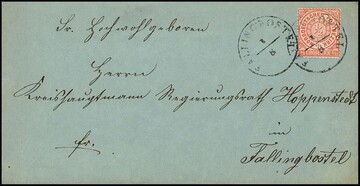 Sr. Hochwohlgeboren
FALLINGBOSTEL
1/8
Herrn
Kreishauptmann Regierungsrath Hoppenstedt
im
fr.
Fallingbostel